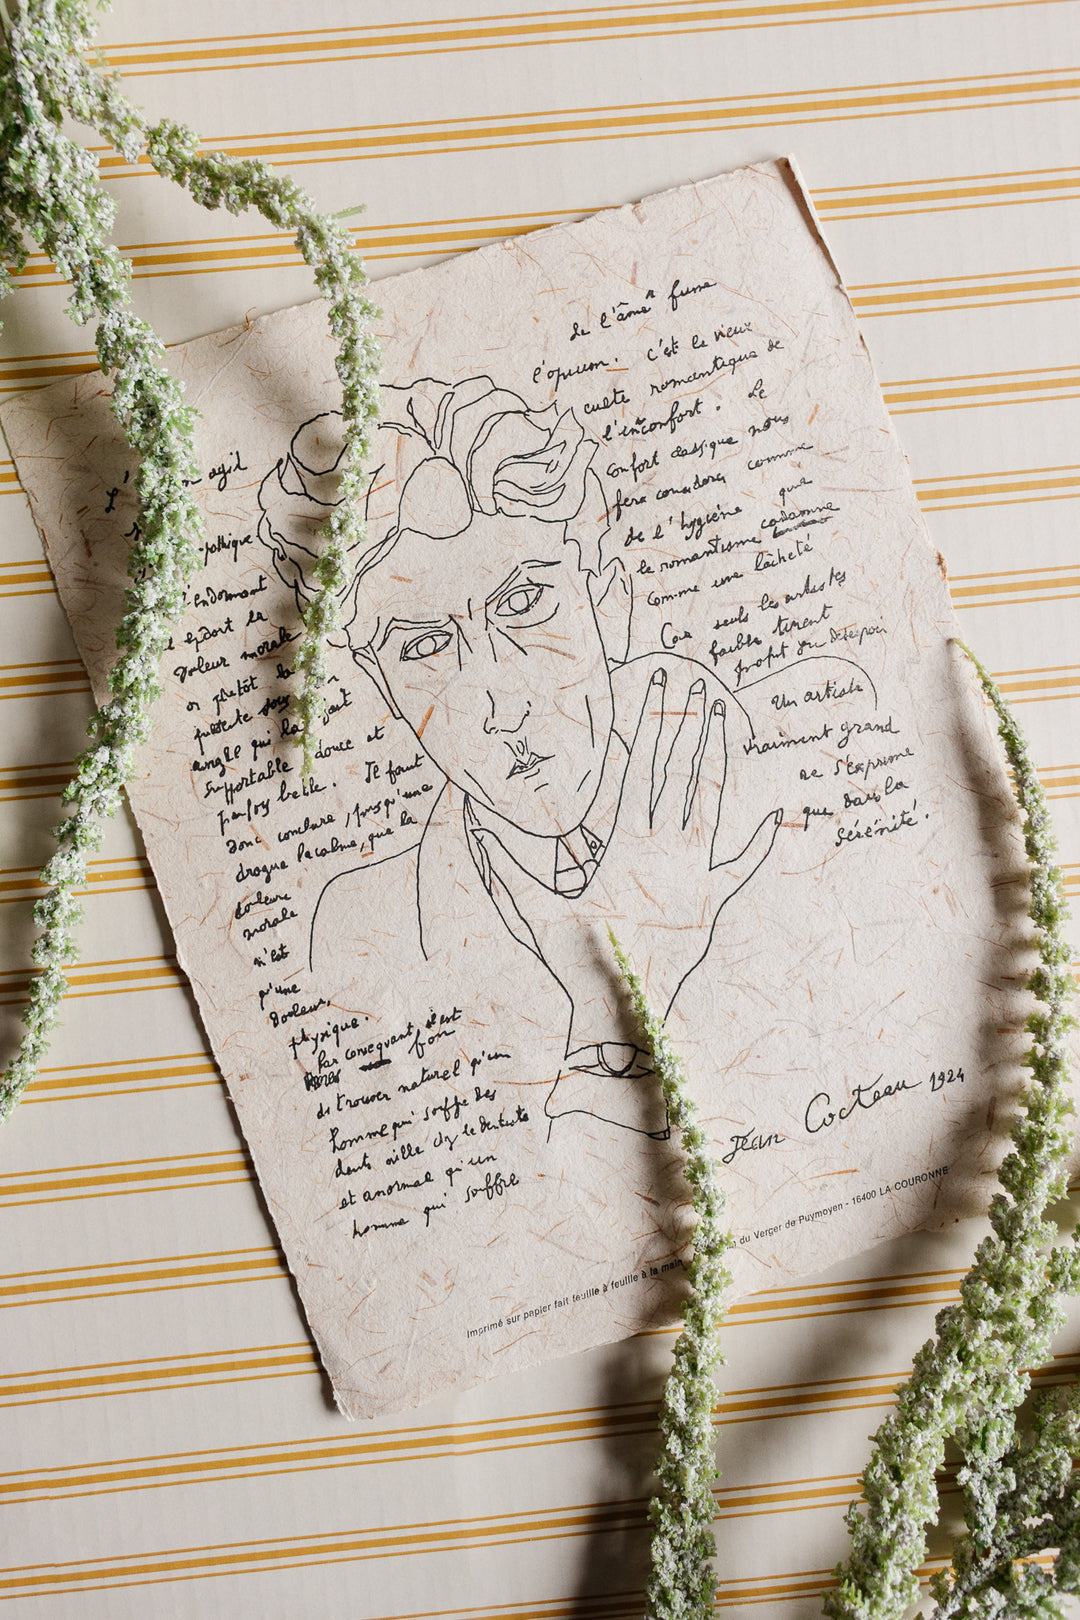 agil
-pathique
endormant
la
douleur morale
ou plutôt la
angle qui la
supportable douce et
parfois belle. Il faut
donc conclure, puisqu'une
drogue la calme, que la
douleur
morale
n'est
qu'une
douleur
physique.
Par consequent, il est
fou
de trouver naturel qu'un
homme qui souffre des
dents aille chez le dentiste
et anormal qu'un
homme qui souffre
de l'âme fume
l'opium. C'est le vieux
culte romantique de
l'inconfort. Le
confort classique nous
fera considerer comme
de l'hygiène que
le romantisme condamne
comme une lâcheté
Car seuls les artistes
faibles tirent
profit du désespoir
Un artiste
vraiment grand
ne s'exprime
que dans la
sérénité.
Jean Cocteau 1924
Imprimé sur papier fait feuille à feuille à la main du Verger de Puymoyen - 16400 LA COURONNE